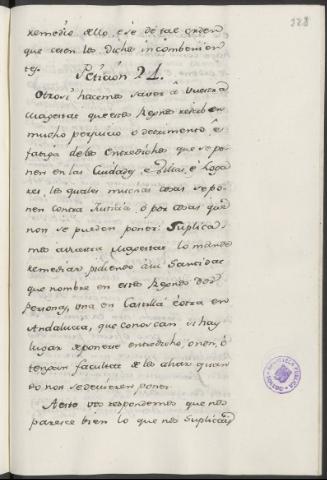 328
remedio dello, e se dé tal orden
que cesen los dichos incombenien
tes.
Peticion 24.
Otrosi hacemos saver à Vuestra
Magestat que estos Regnos reciben
mucho perjuicio o detrimento è
fatiga de los Entredichos que se po-
nen en las Ciudades, e Villas, è Loga-
res, los quales muchas veces se po-
nen contra Justicia, ò por cosas que
non se pueden poner: Suplica-
mos a vuestra Magestat lo mande
remediar pidiendo à su Santidat
que nombre en estos Regnos dos
Personas, una en Castilla è otra en
Andalucia, que conozcan si hay
lugar de ponerse entredicho, o non, è
tengan facultat de los alzar quan
do non se devieren poner.
A esto vos respondemos que nos
paresce bien lo que nos suplicais